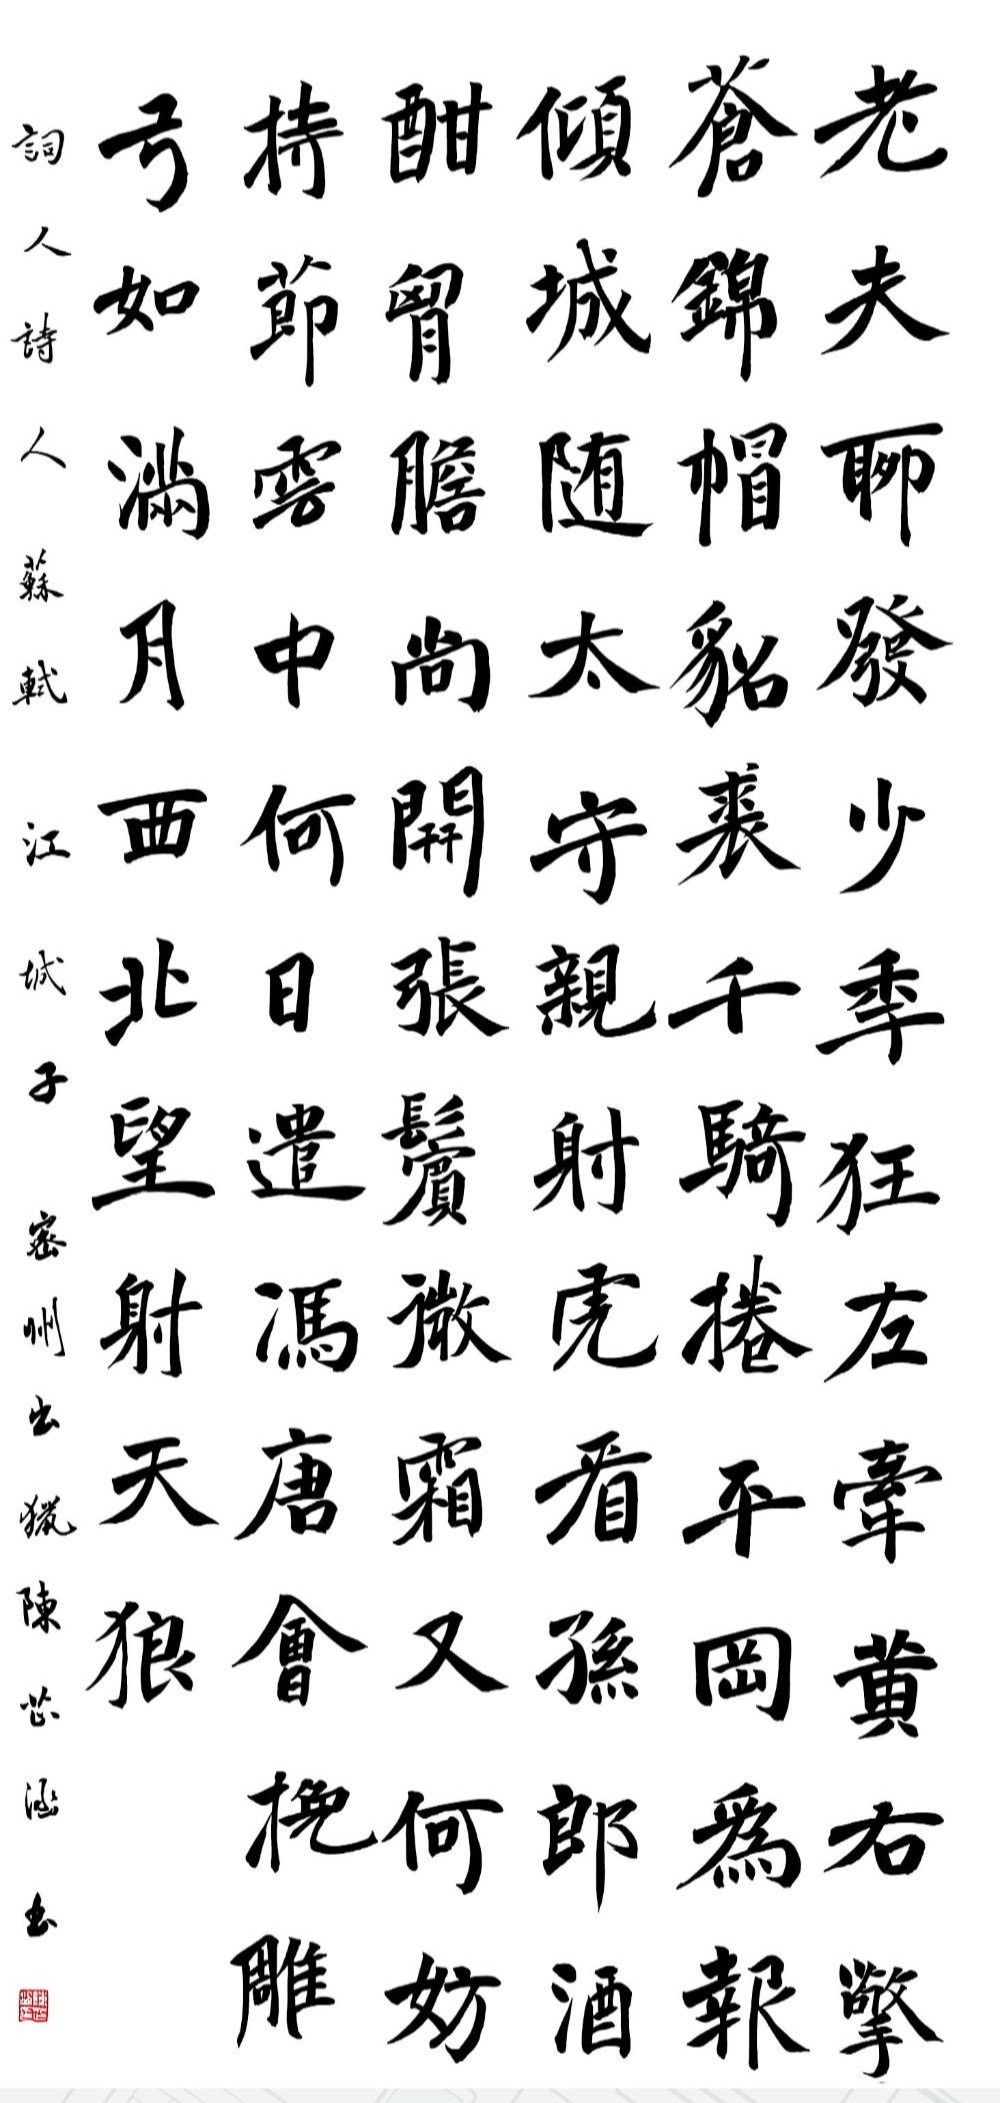 老夫聊發少秊狂左牽黃右擎
蒼錦帽貂裘千騎捲平岡爲報
傾城随太守親射虎看孫郎酒
酣胷膽尚開張鬢微霜又何妨
持節雲中何日遣馮唐會挽雕
弓如滿月西北望射天狼
詞人詩人蘇軾江城子密州出獵陳芷涵書